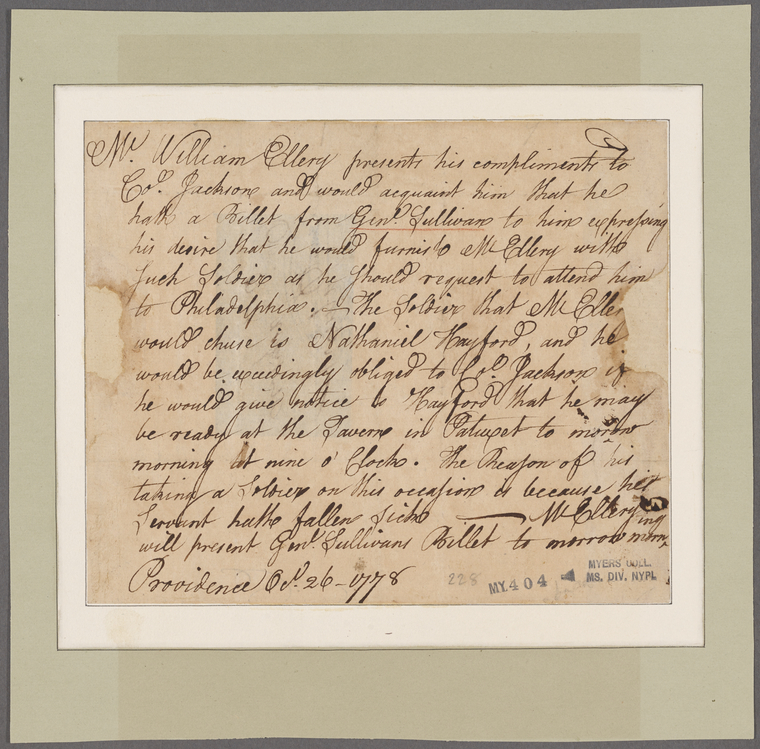 Mr. William Ellery presents his compliments to
Col. Jackson and would acquaint him that he
hath a Billet from Genl. Sullivan to him expressing
his desire that he would furnish Mr Ellery with
such Soldier as he should request to attend him
to Philadelphia. — The Soldier that Mr Eller
would chuse is Nathaniel Hayford, and he
would be exceedingly obliged to Col. Jackson if
he would give notice to Hayford that he may
be ready at the Tavern in Patuxet to morrow
morning at nine o' Clock. The Reason of his
taking a Soldier on this occasion is because his
Servant hath fallen sick — Mr Ellery
will present Genl. Sullivans Billet to morrow morning
Providence Oct. 26 - 1778
228 MY.404 MYERS COLL.
MS. DIV. NYPL